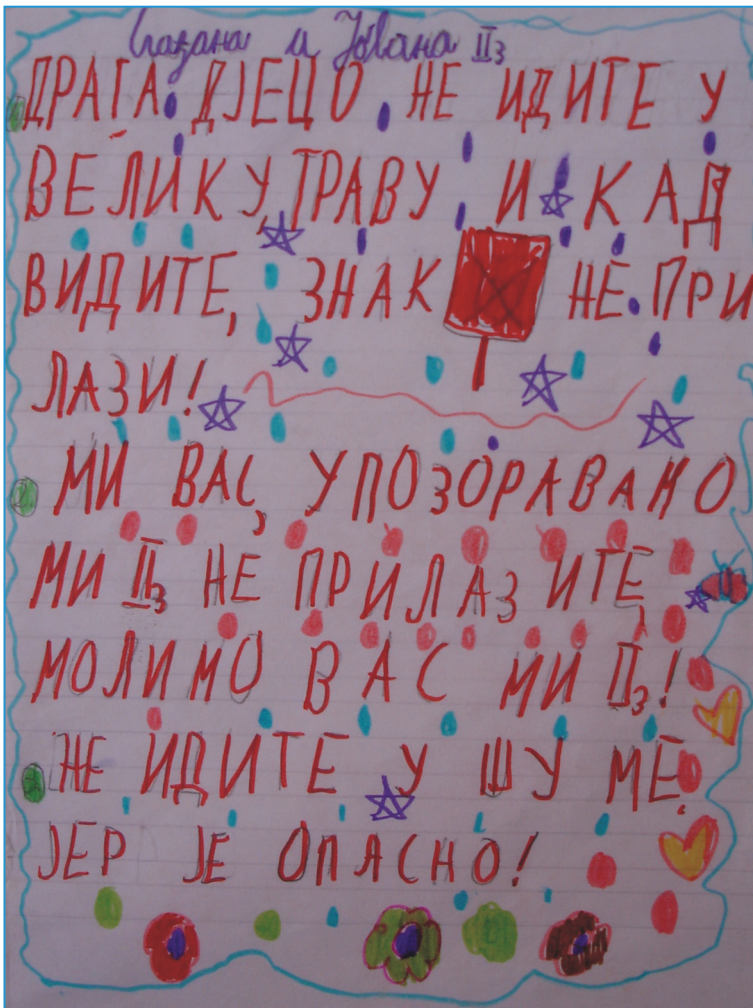 и Јована II3
ДРАГА ДЈЕЦО НЕ ИДИТЕ У
ВЕЛИКУ, ТРАВУ И КАД
ВИДИТЕ, ЗНАК НЕ ПРИ
ЛАЗИ!
МИ ВАС, УПОЗОРАВАМО
МИ II3 НЕ ПРИЛАЗИТЕ,
МОЛИМО ВАС МИ II3!
НЕ ИДИТЕ У ШУМЕ.
ЈЕР ЈЕ ОПАСНО!